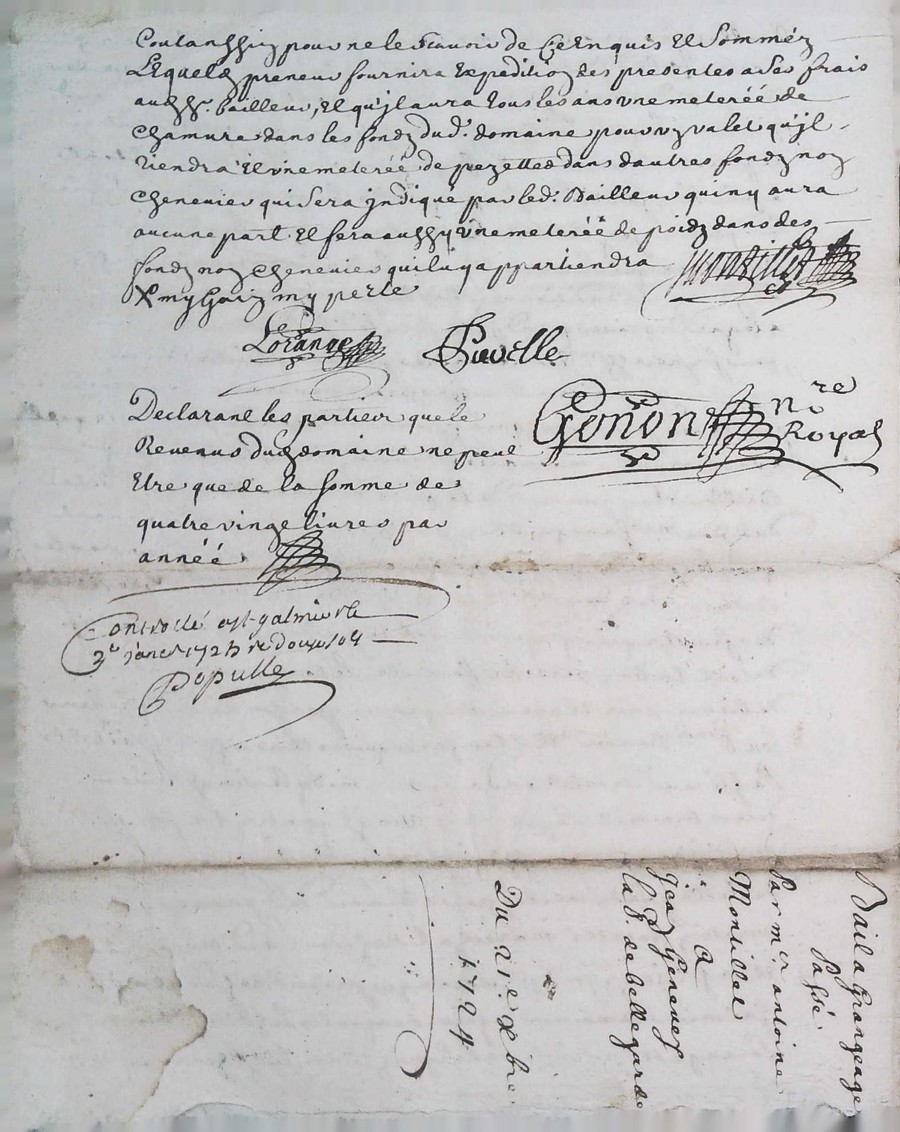 pour ne le Scavoir de Ce Enquis Et Sommés
Lequel preneur fournira Expedition des presentes a Ses frais
bailleur, Et qu'jl aura tous les ans vne meterée de
Chamure dans les fondz dud. domaine pour vn valet qu'jl
tiendra Et vne meterée de pezettes dans dautres fondz non
Chenevier qui Sera jndiqué par led. Bailleur qui ny aura
aucune part Et fera aussy vne meterée de poidz dans des
fondz non Chenevier qui luy appartiendra
ny perte
Lorange
Gonon nre
Royal
Declarant les parties que le
Revenus dud domaine ne peut
Etre que de la somme de
quatre vingt livres par
année
Controllé a St galmier le
janer 172 re douze s
Populle
Bail a Grangeage
Passé
Par mr antoine
Montillet
A
Jean
la P. de bellegarde
Du 21e Xbre
1724